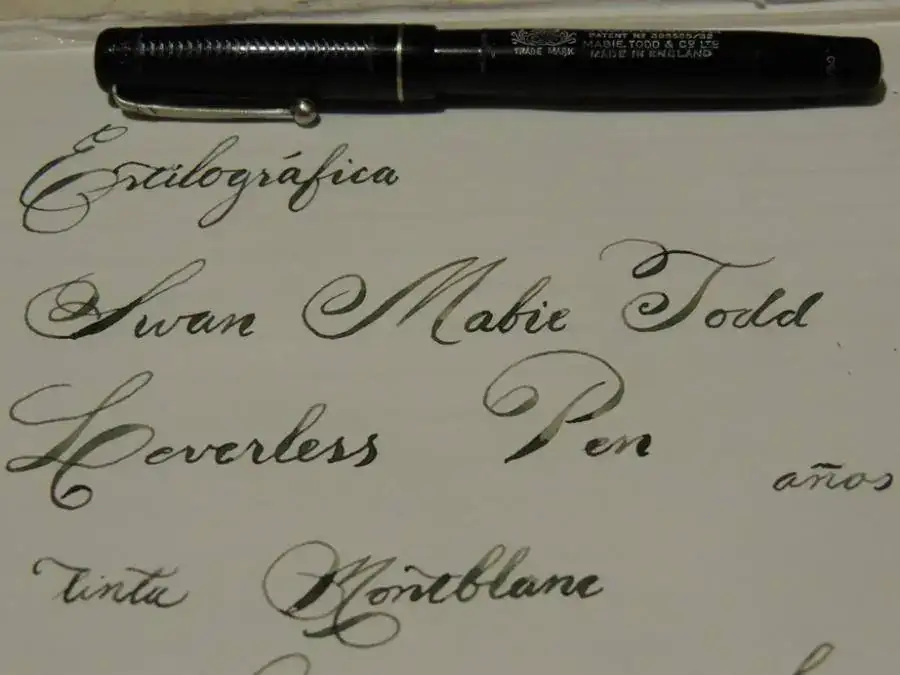 TRADE MARK
PATENT Nº 390585/32
MABIE, TODD & Cº LTD
MADE IN ENGLAND
Estilográfica
Swan Mabie Todd
Leverless Pen
años
tinta Montblanc